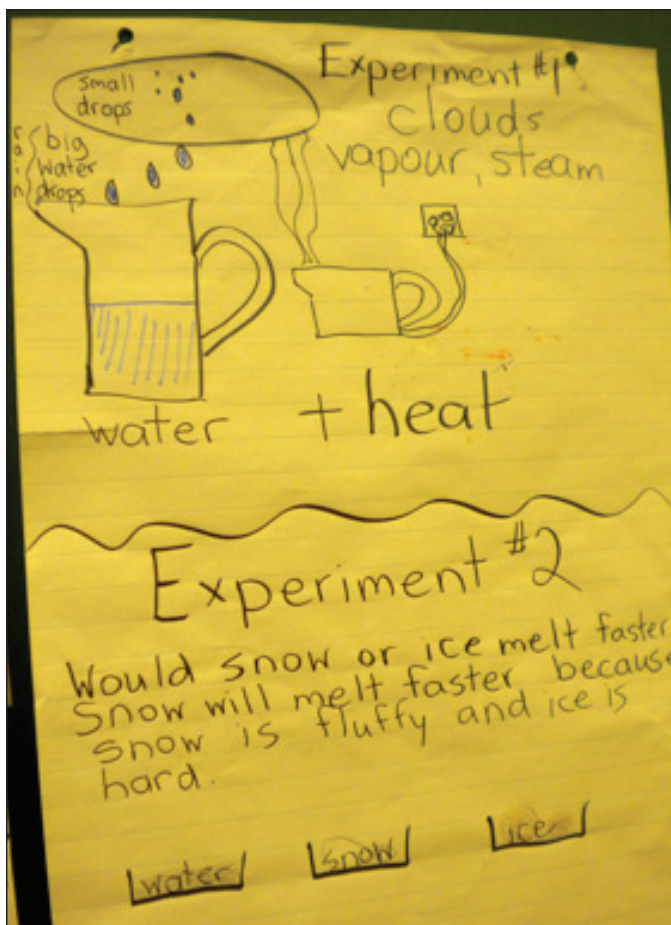 Experiment #1
clouds
vapour, steam
small
drops
rain
big
water
drops
water + heat
Experiment #2
Would snow or ice melt faster
Snow will melt faster because
snow is fluffy and ice is
hard.
water snow ice